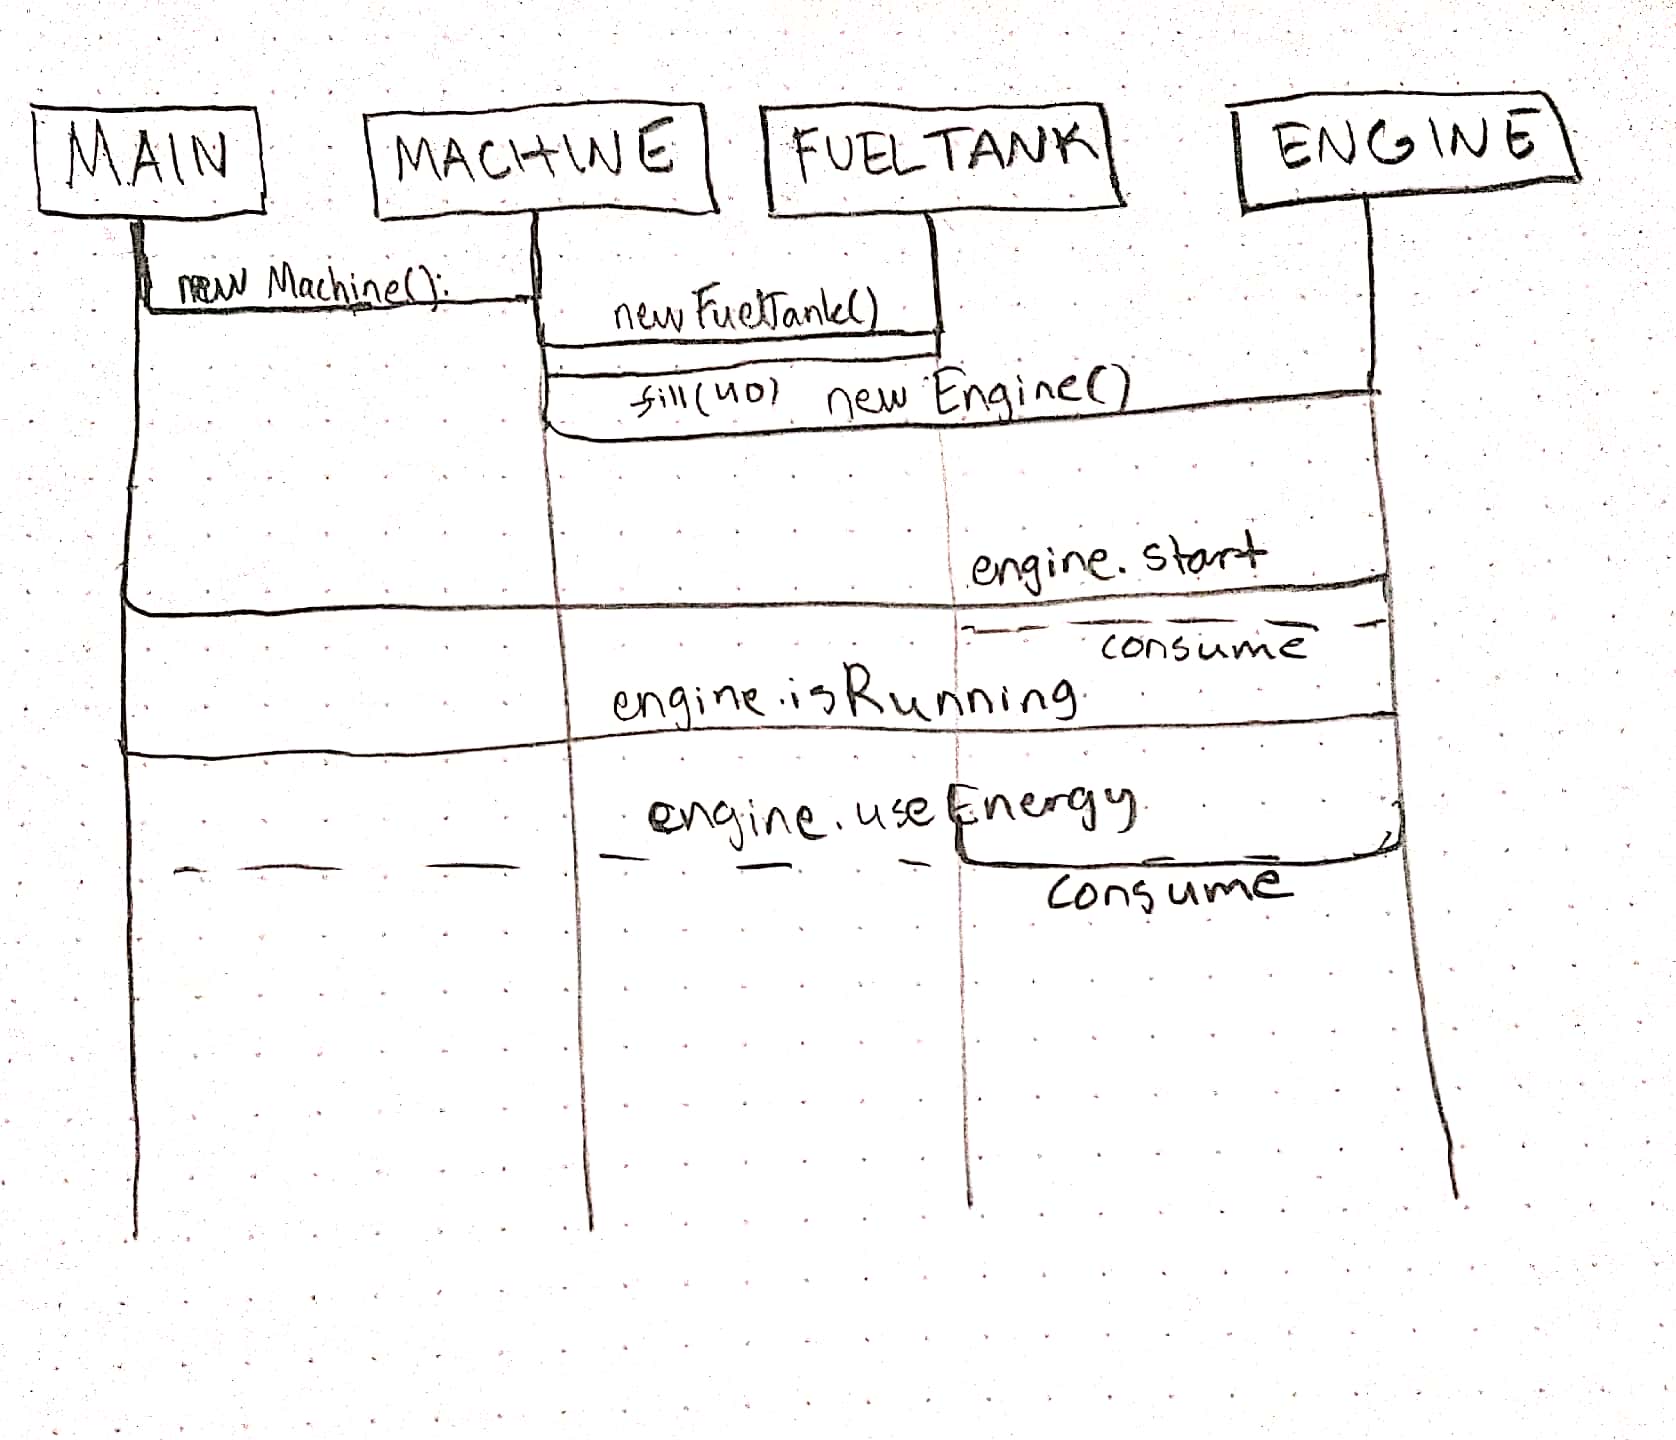 MAIN MACHINE FUELTANK ENGINE
new Machine():
new FuelTank()
fill(40) new Engine()
engine.start
consume
engine.isRunning
engine.useEnergy
consume